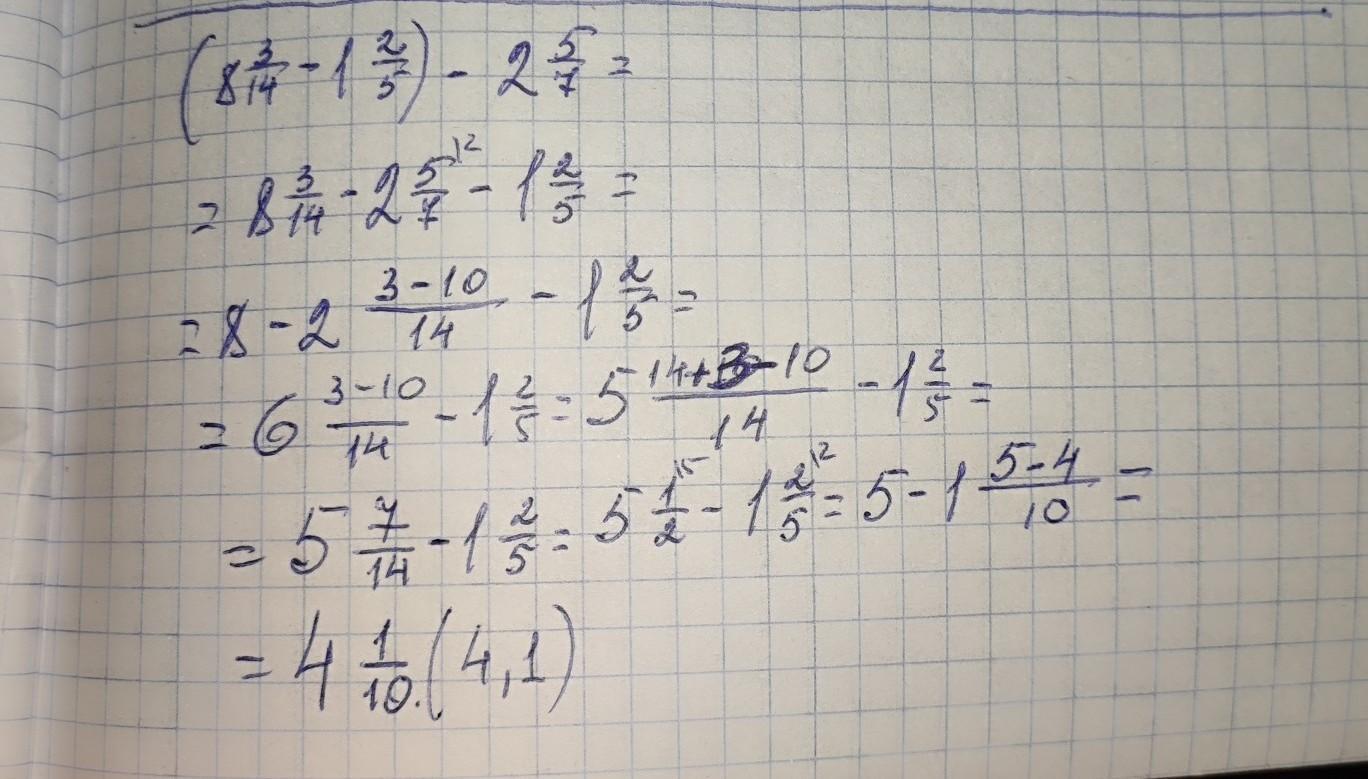 (8 3/14 - 1 2/5) - 2 5/7 =
= 8 3/14 - 2 5/7 ^12 - 1 2/5 =
= 8 - 2 (3-10)/14 - 1 2/5 =
= 6 (3-10)/14 - 1 2/5 = 5 (14+3-10)/14 - 1 2/5 =
= 5 7/14 - 1 2/5 = 5 1/2 ^15 - 1 2/5 ^12 = 5 - 1 (5-4)/10 =
= 4 1/10. (4,1)